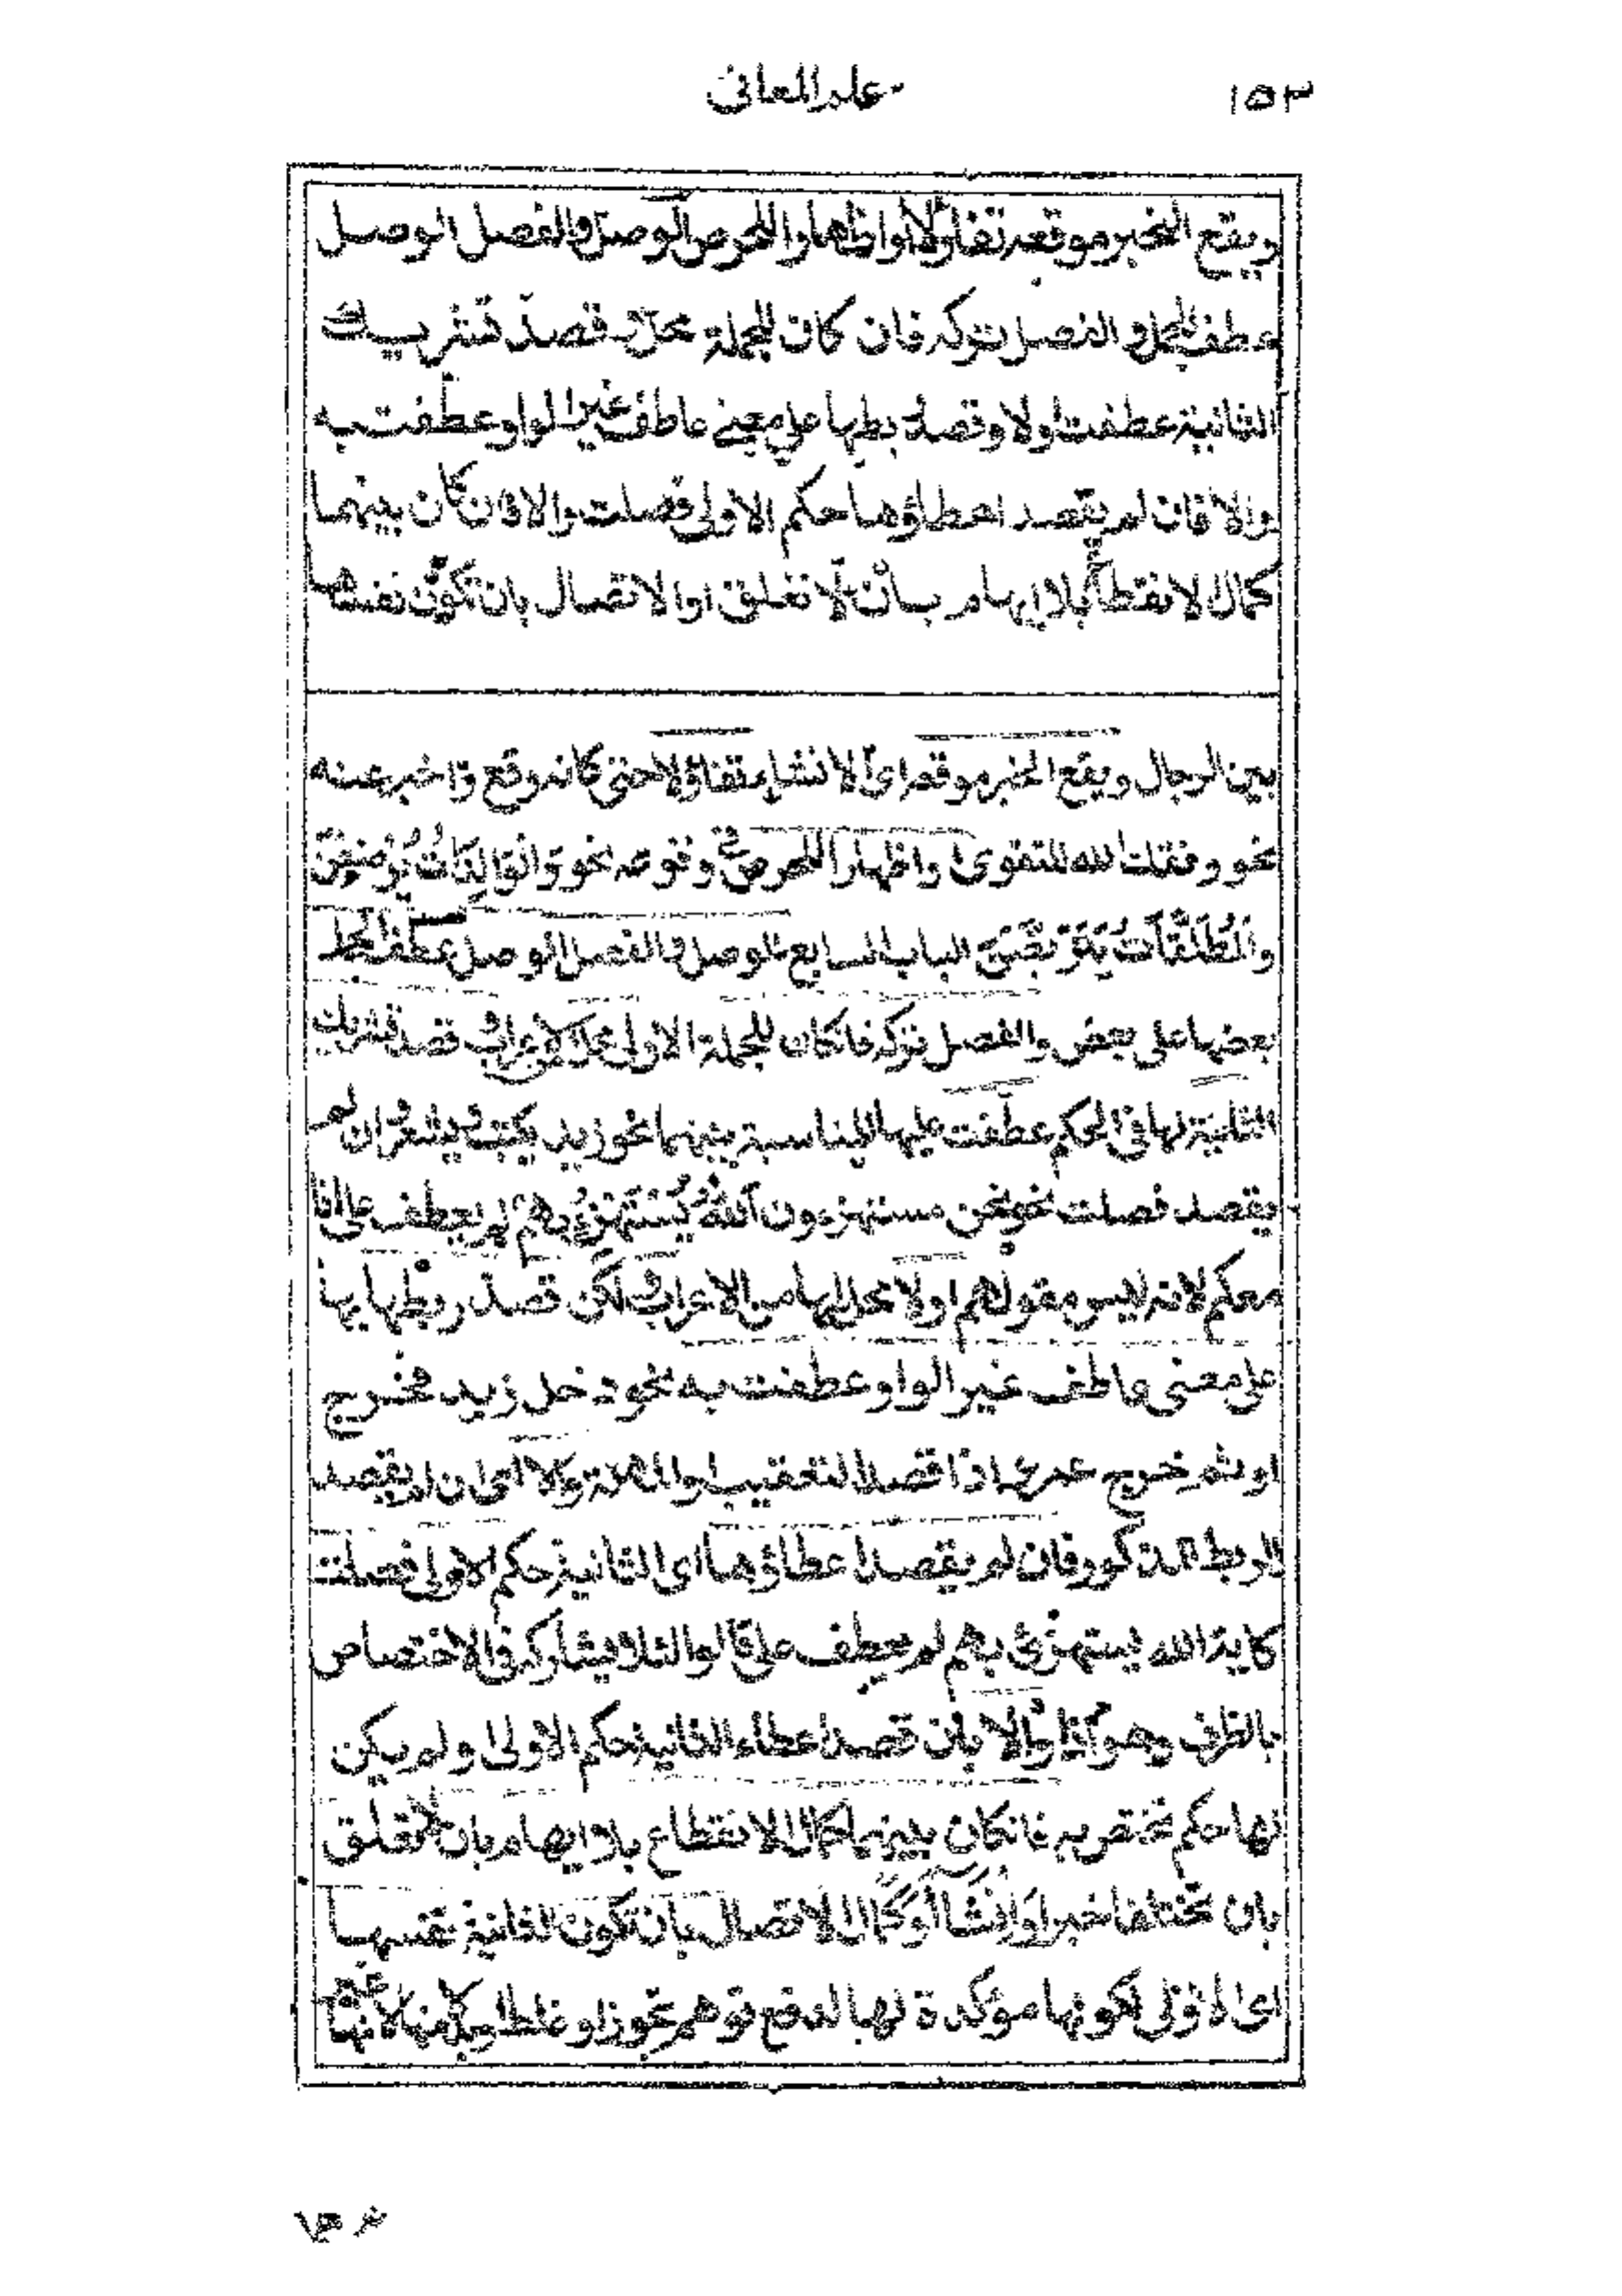 علم المعانى
١٥٣
ويقع الخبر موقعه تفاؤلا او اظهارا للحرص الوصل والفصل الوصل
عطف الجمل والفصل تركه فان كان للجملة محل وقصد تشريك
الثانية عطفت اولا وقصد ربطها على معنى عاطف غير الواو عطفت به
والا فان لم يقصد اعطاؤها حكم الاولى فصلت والا فان كان بينهما
كمال الانقطاع بلا ايهام بان لا تعلق او الاتصال بان تكون نفسها
بين الرجال ويقع الخبر موقعه اى الانشاء تفاؤلا حتى كانه وقع واخبر عنه
نحو وفقك الله للتقوى او اظهارا للحرص فى وقوعه نحو وَالْوَالِدَاتُ يُرْضِعْنَ
وَالْمُطَلَّقَاتُ يَتَرَبَّصْنَ الباب السابع الوصل والفصل الوصل عطف الجمل
بعضها على بعض والفصل تركه فان كان للجملة الاولى محل من الاعراب وقصد تشريك
الثانية لها فى الحكم عطفت عليها للمناسبة بينهما نحو زيد يكتب ويشعر وان لم
يقصد فصلت نحو نحن مستهزءون اَللهُ يَسْتَهْزِئُ بِهِمْ لم يعطف على انا
معكم لانه ليس مقولهم اولا محل لها من الاعراب ولكن قصد ربطها بها
على معنى عاطف غير الواو عطفت به نحو دخل زيد فخرج
او ثم خرج عمرو اذا قصد التعقيب او المهلة والا اى ان لم يقصد
الربط المذكور فان لم يقصد اعطاؤها اى الثانية حكم الاولى فصلت
كاية الله يستهزئ بهم لم يعطف على قالوا لئلا يشاركه فى الاختصاص
بالظرف وهو اذا والا بان قصد اعطاء الثانية حكم الاولى ولم يكن
لها حكم تختص به فان كان بينهما كمال الانقطاع بلا ايهام بان لا تعلق
بان تختلفا خبرا وانشاء او كمال الاتصال بان تكون الثانية نفسها
اى الاولى لكونها مؤكدة لها لدفع توهم تجوز او غلط او بدلا منها لانها